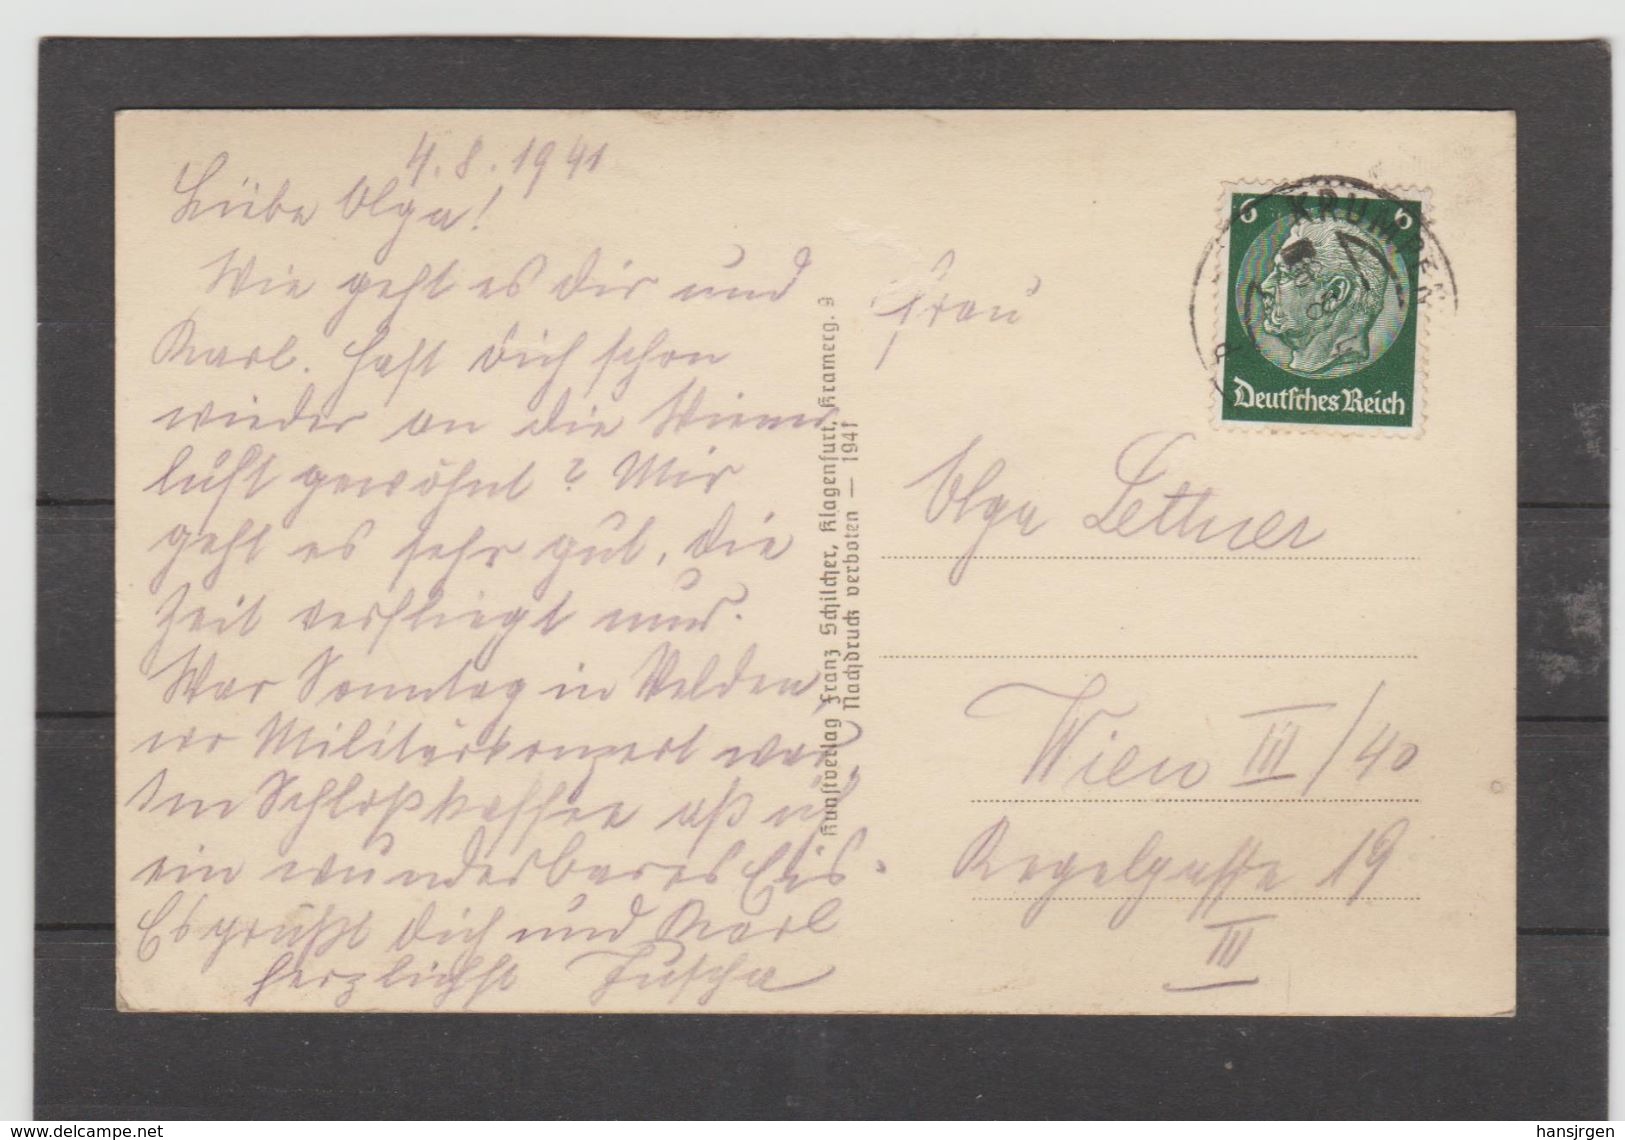 4.8.1941
Liebe Olga!
Wie geht es dir und
Karl. Hast dich schon
wieder an die Wiener
luft gewöhnt? Mir
geht es sehr gut, die
Zeit verfliegt nur.
War Sonntag in Velden,
wo Militärkonzert war,
Im Schloßkaffee aß ich
ein wunderbares Eis.
Es grüßt dich und Karl
herzlichst Tuscha
Kunstverlag Franz Schilcher, Klagenfurt, Kramerg. 9
Nachdruck verboten — 1941
6 6
KRUMPEN
Deutsches Reich
Frau
Olga Lettner
Wien III/40
Kegelgasse 19
III
www.delcampe.net
hansjrgen